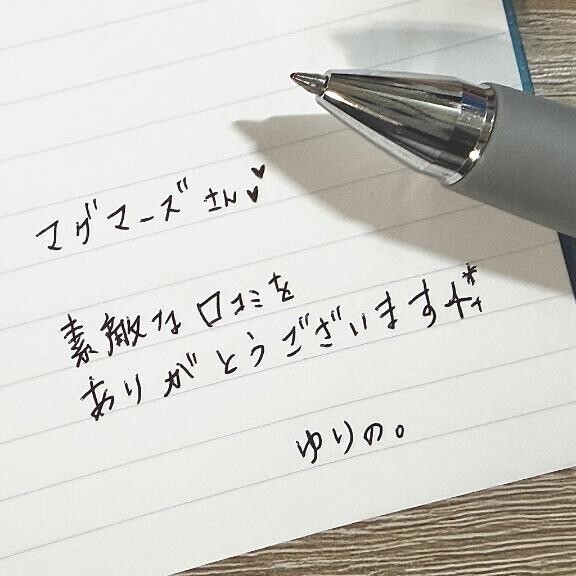 マグマーズさん♥♥
素敵な口コミを
ありがとうございます
ゆりの。